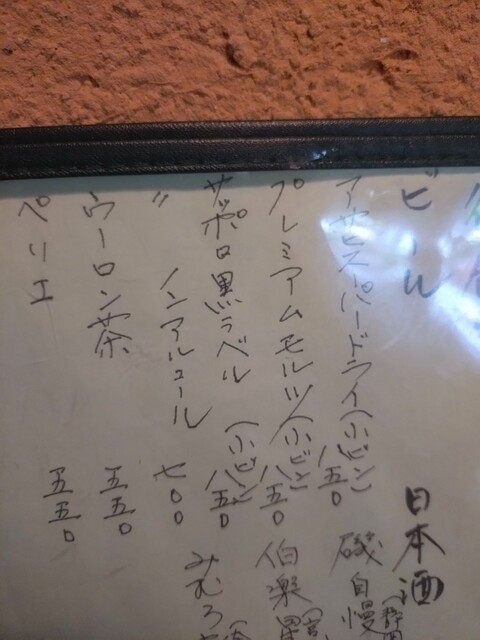 ビール
アサヒスーパードライ(小ビン) 八五〇
プレミアムモルツ(小ビン) 八五〇
サッポロ黒ラベル(小ビン) 八五〇
〃 ノンアルコール 七〇〇
ウーロン茶 五五〇
ペリエ 五五〇
日本酒
磯自慢
伯楽星
みむろ